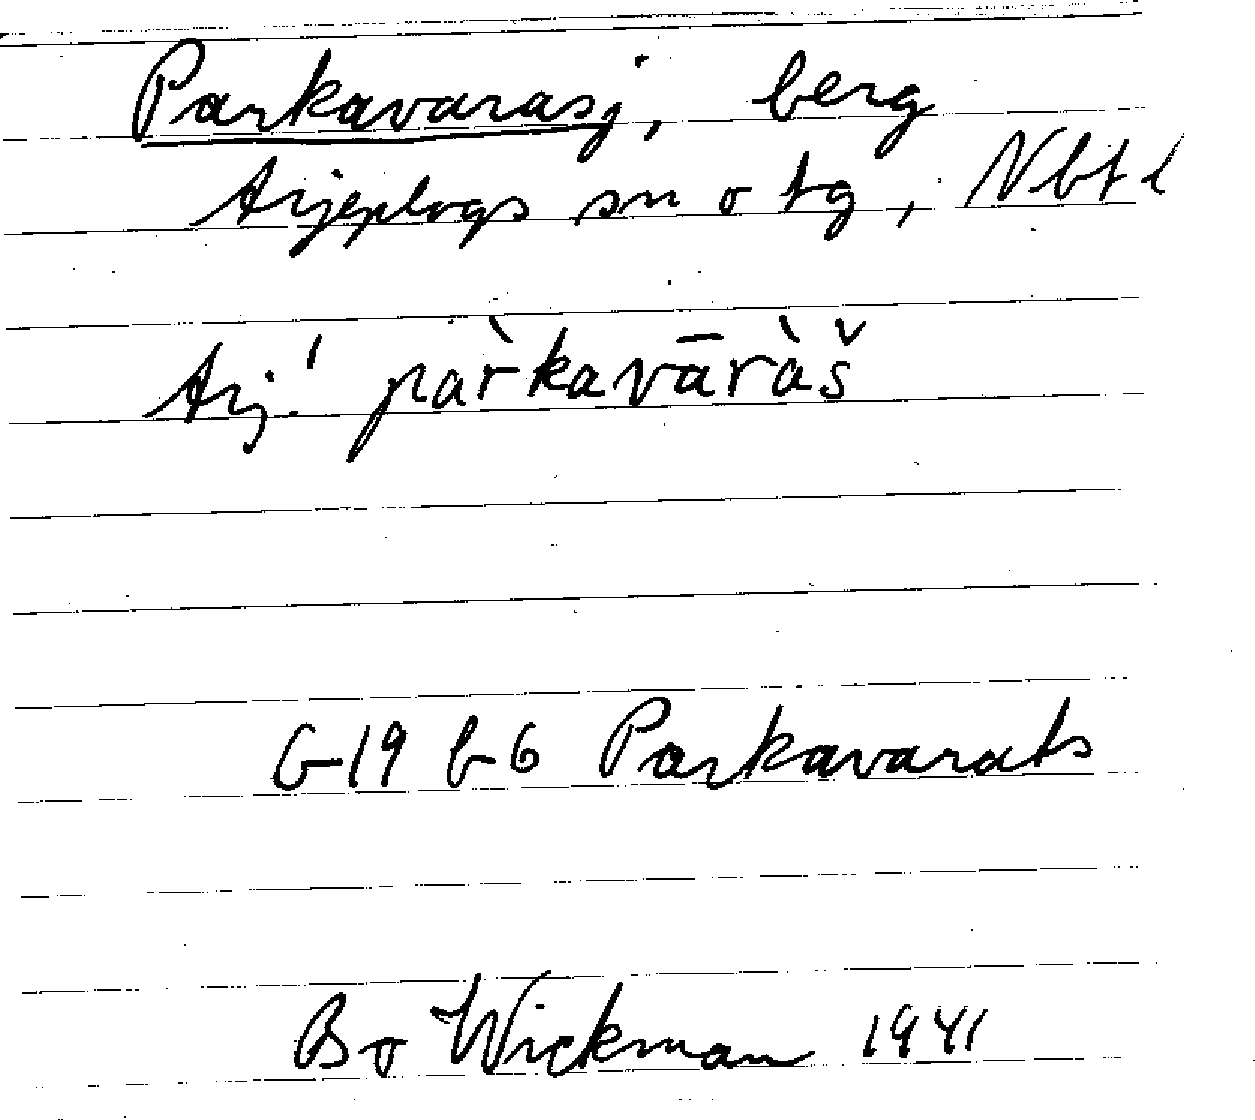 Parkavarasj, berg
Arjeplogs sn o tg, Nbtl
Arj.' par̀kavāràš
G-19 b-6 Parkavarats
Bo Wickman 1941